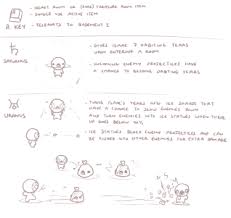 - SECRET ROOM OR (RARE) TREASURE ROOM ITEM
- SINGLE USE ACTIVE ITEM
R KEY
- TELEPORTS TO BASEMENT I
- GIVES ISAAC 7 ORBITING TEARS
UPON ENTERING A ROOM
SATURNUS
- INCOMING ENEMY PROJECTILES HAVE
A CHANCE TO BECOME ORBITING TEARS
- TURNS ISAAC'S TEARS INTO ICE SHARDS THAT
HAVE A CHANCE TO SLOW ENEMIES DOWN
AND TURN ENEMIES INTO ICE STATUES WHEN THEIR
URANUS
HP GOES BELOW
- ICE STATUES BLOCK ENEMY PROJECTILES AND CAN
BE PUSHED INTO OTHER ENEMIES FOR EXTRA DAMAGE